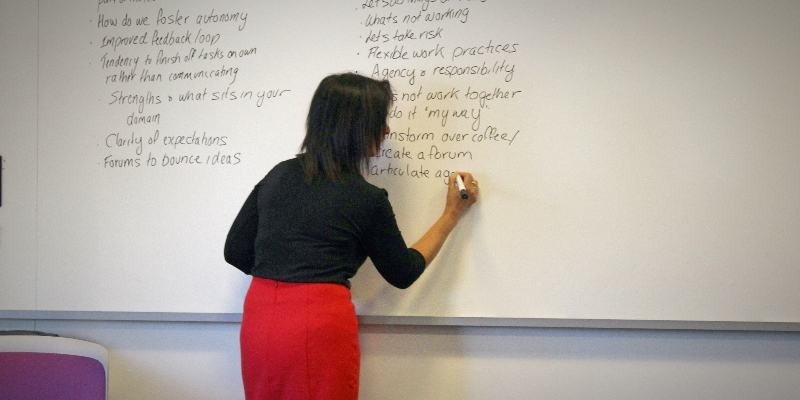 How do we foster autonomy
Improved feedback loop
Tendency to finish off tasks on own
rather than communicating
Strengths & what sits in your
domain
Clarity of expectations
Forums to bounce ideas
Whats not working
Lets take risk
Flexible work practices
Agency & responsibility
not work together
do it "my way"
over coffee/
create a forum
articulate